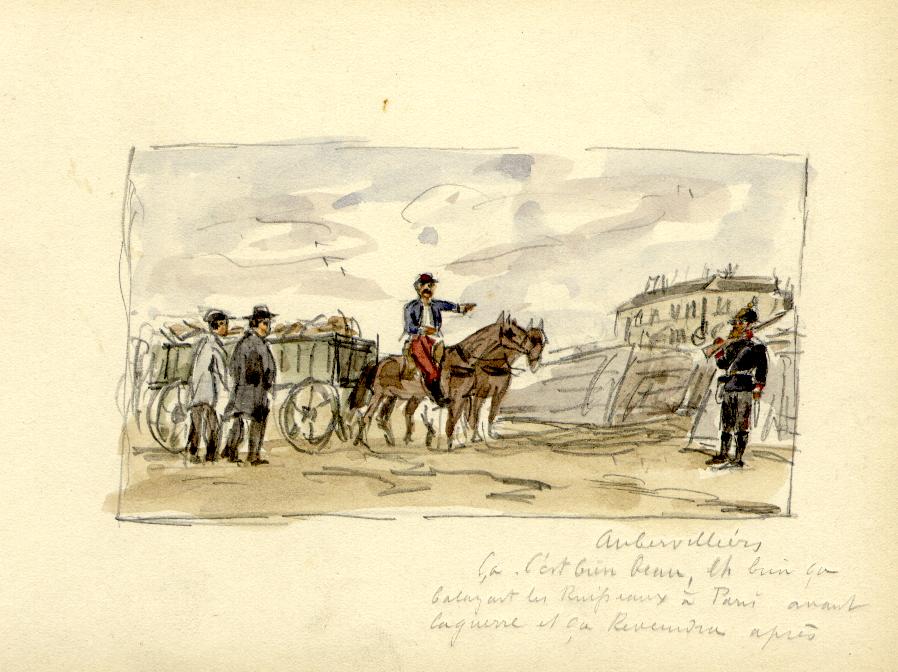 Aubervilliers
Ça. C'est bien beau, Eh bien ça
balayait les Ruisseaux à Paris avant
la guerre et ça Reviendra après